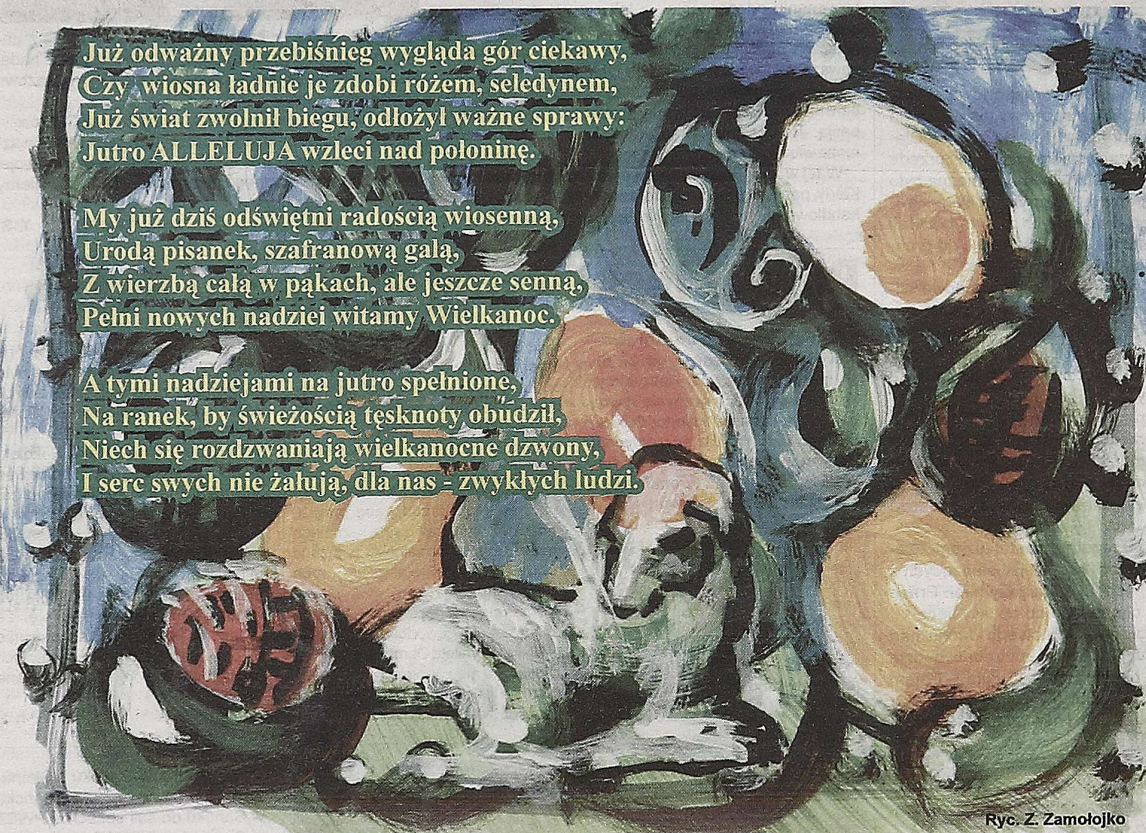 Już odważny przebiśnieg wygląda gór ciekawy,
Czy wiosna ładnie je zdobi różem, seledynem,
Już świat zwolnił biegu, odłożył ważne sprawy:
Jutro ALLELUJA wzleci nad połoninę.

My już dziś odświętni radością wiosenną,
Urodą pisanek, szafranową galą,
Z wierzbą całą w pąkach, ale jeszcze senną,
Pełni nowych nadziei witamy Wielkanoc.

A tymi nadziejami na jutro spełnione,
Na ranek, by świeżością tęsknoty obudził,
Niech się rozdzwaniają wielkanocne dzwony,
I serc swych nie żałują, dla nas - zwykłych ludzi.

Ryc. Z. Zamołojko